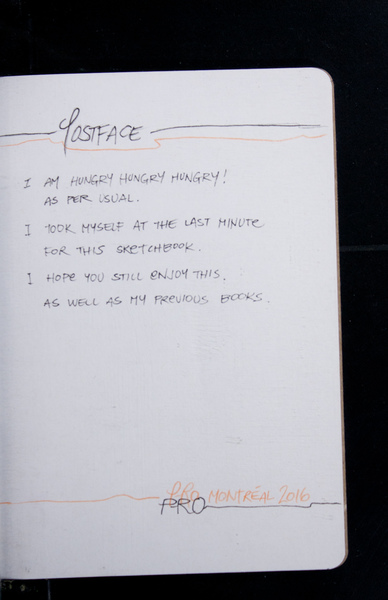 POSTFACE
I AM HUNGRY HUNGRY HUNGRY!
AS PER USUAL.
I TOOK MYSELF AT THE LAST MINUTE
FOR THIS SKETCHBOOK.
I HOPE YOU STILL ENJOY THIS.
AS WELL AS MY PREVIOUS BOOKS.
PRO MONTRÉAL 2016
PRO